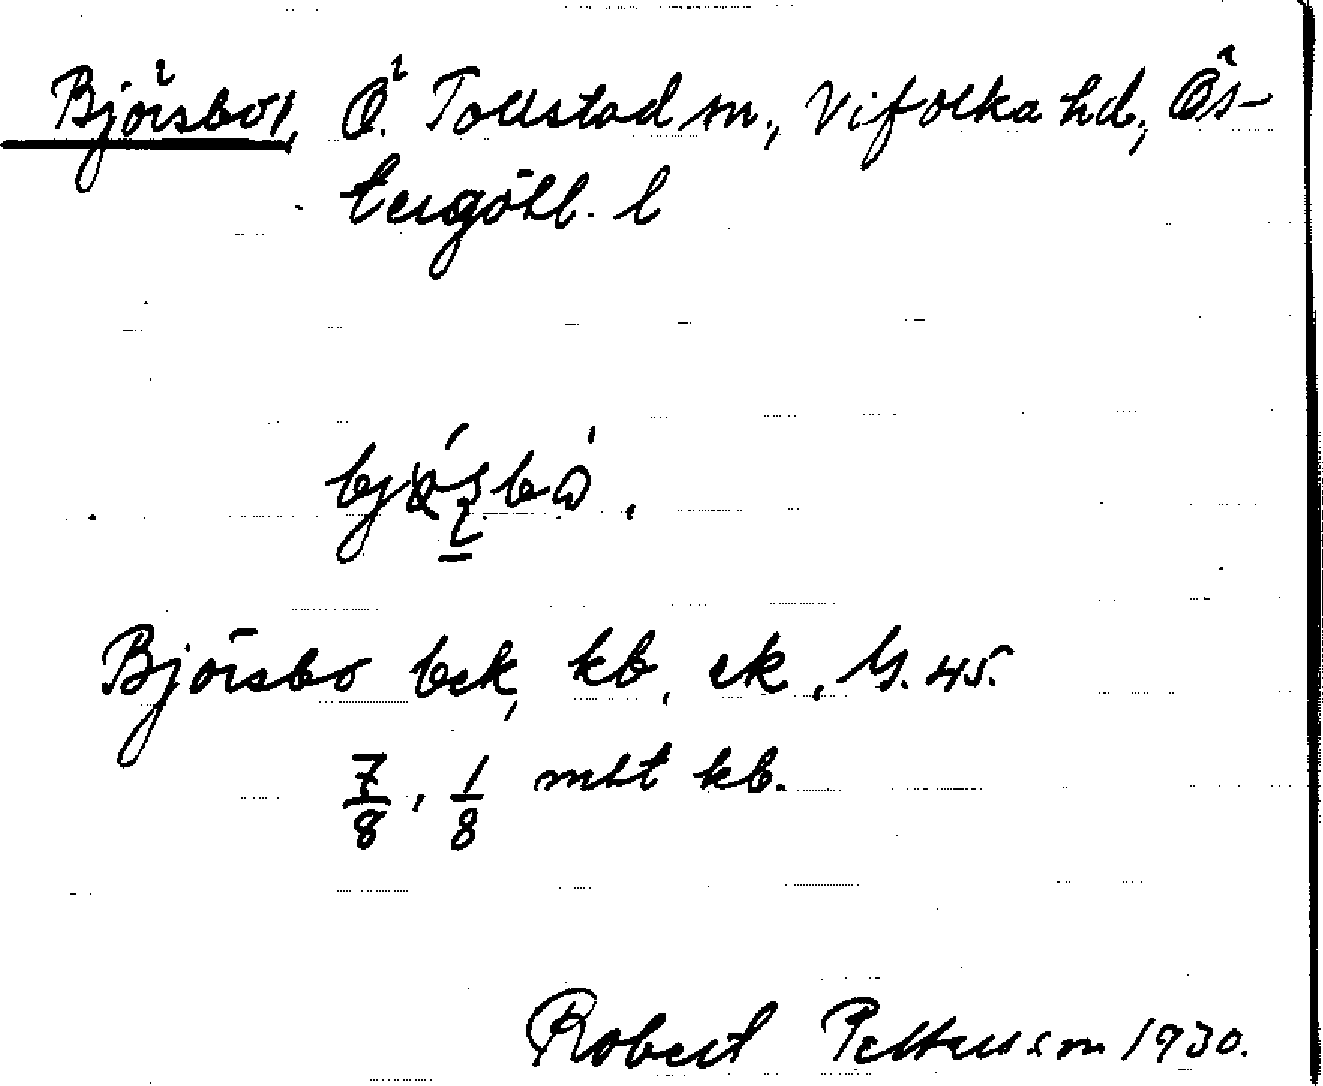 Björsbo, Ö. Tollstad sn, Vifolka hd, Ös-
tergötl. l
Björsbo bek, kb, ek, G. 45.
7/8, 1/8 mtl kb.
Robert Pettersson 1930.